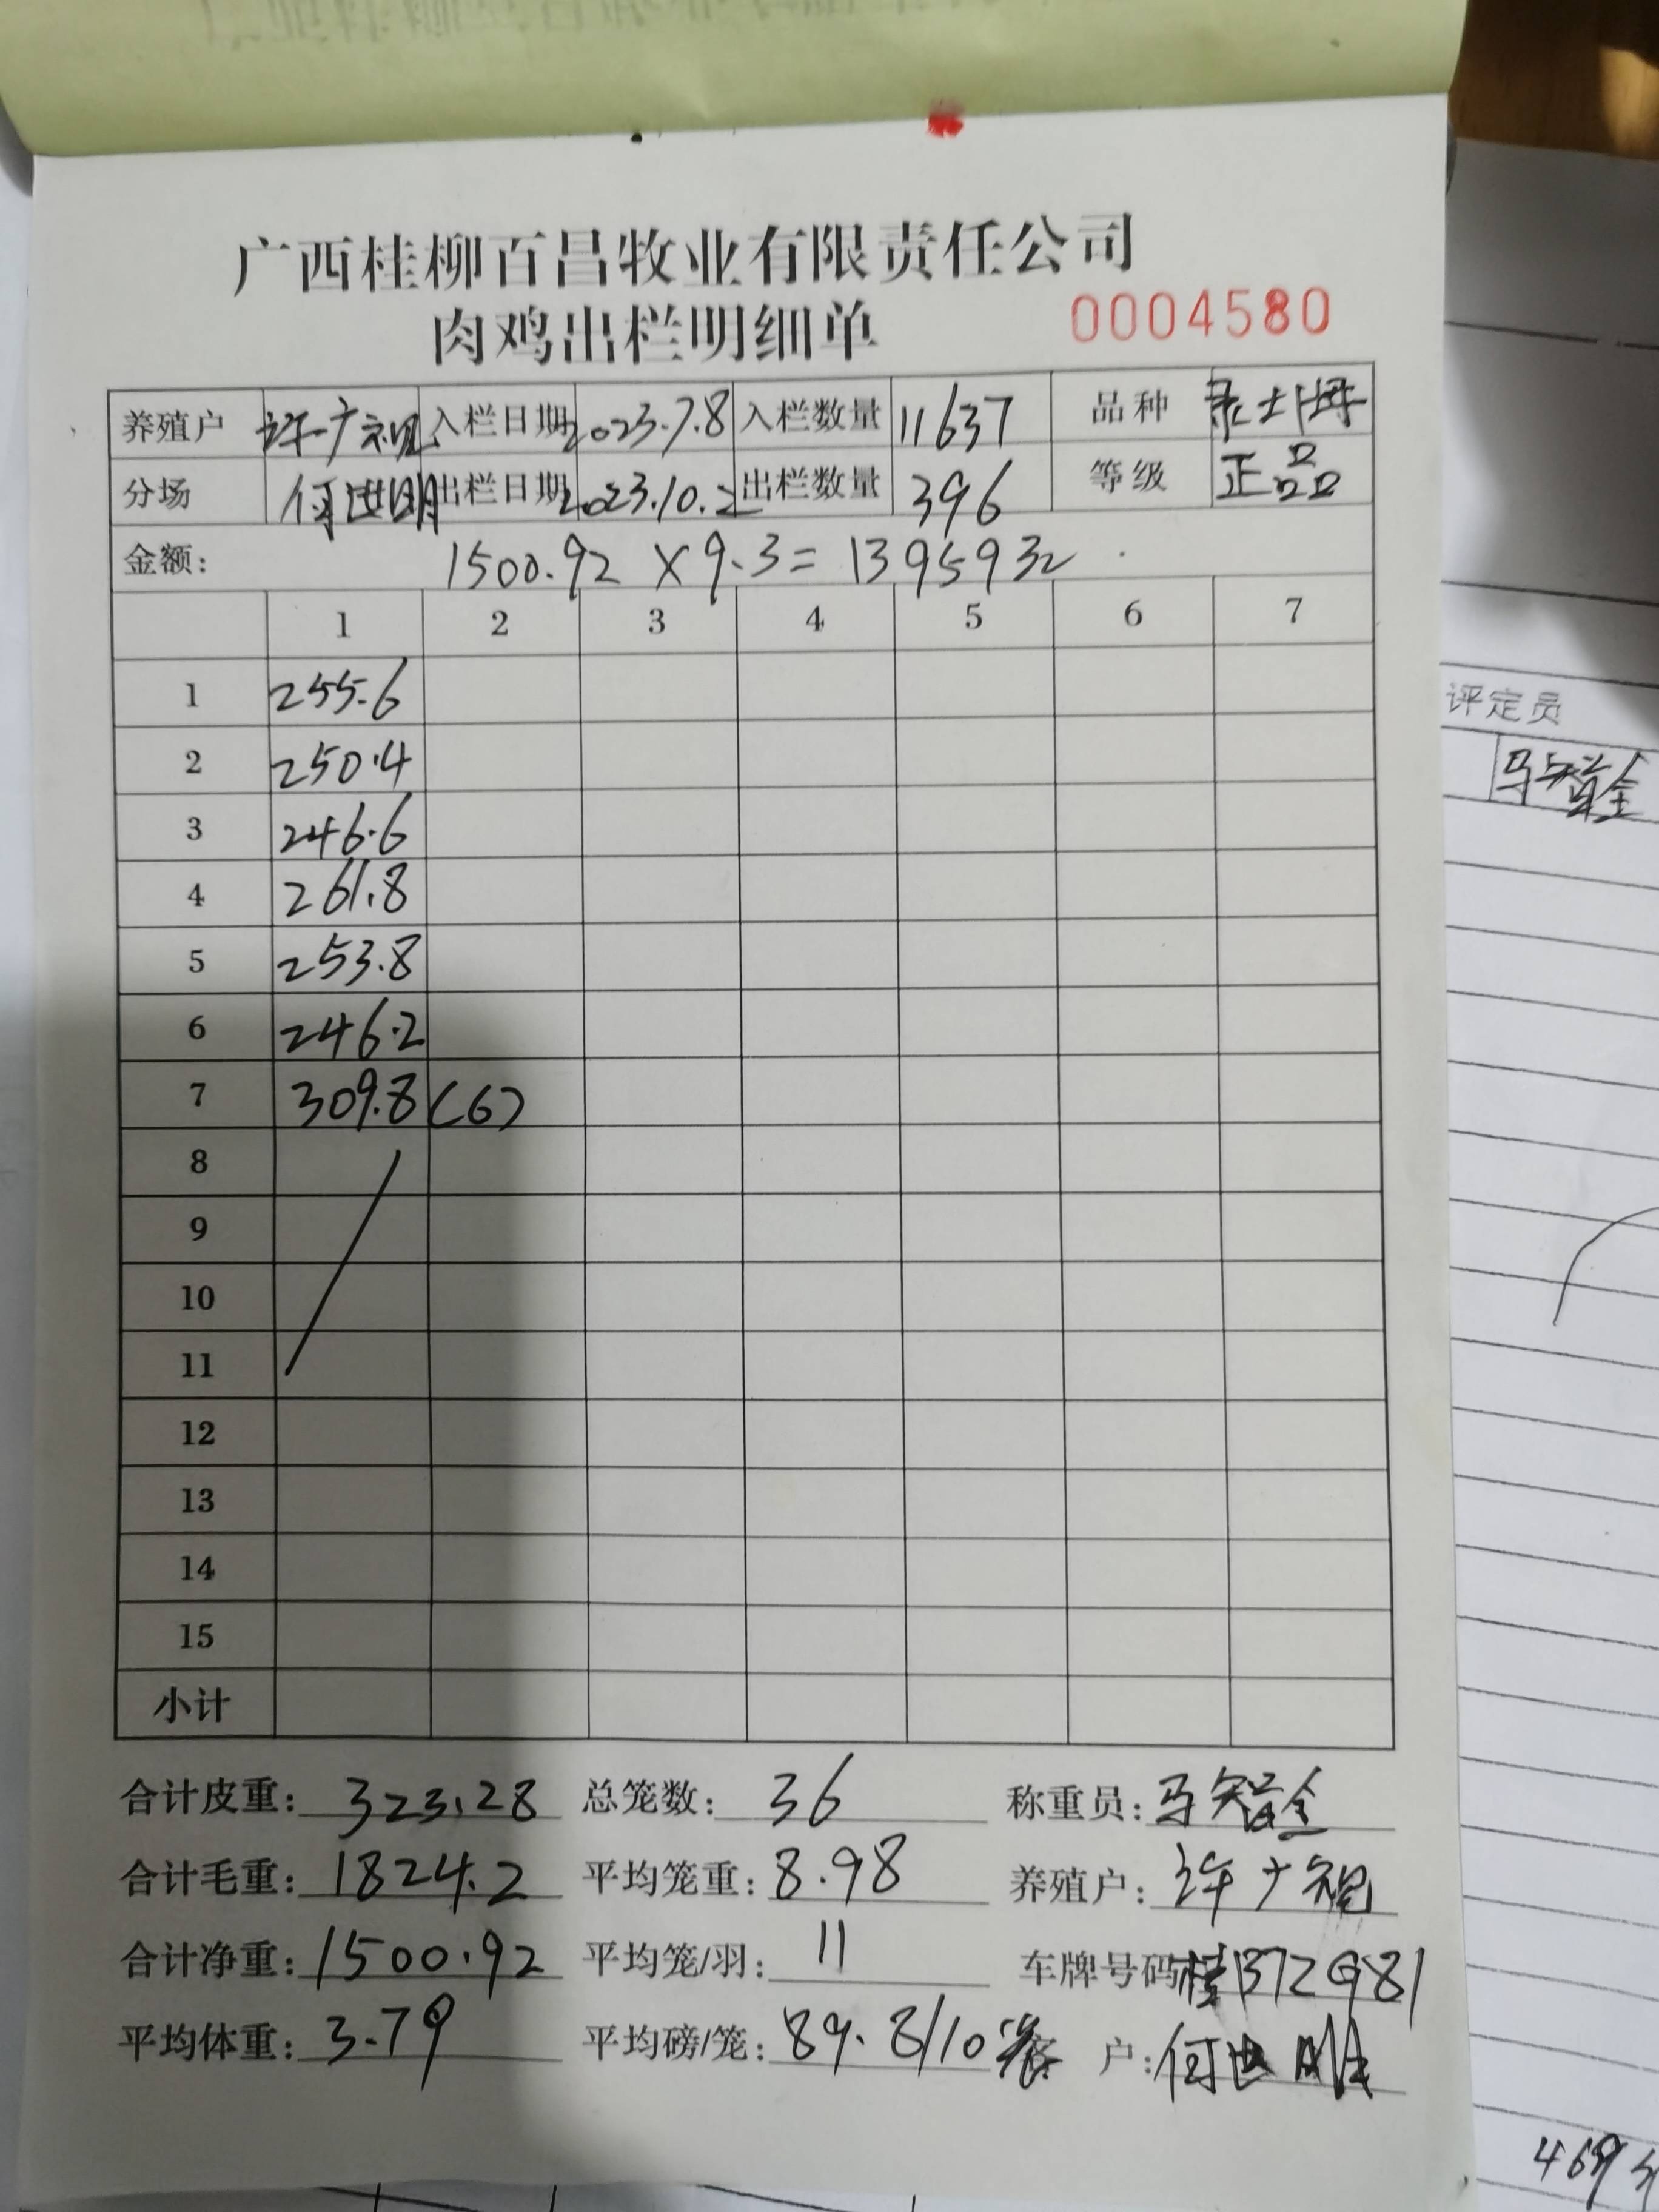 广西桂柳百昌牧业有限责任公司
肉鸡出栏明细单 0004580
养殖户 许广祝 入栏日期 2023.7.8 入栏数量 11637 品种
分场 何世明 出栏日期 2023.10.2 出栏数量 396 等级 正品
金额: 1500.92 × 9.3 = 1395932
1 2 3 4 5 6 7
1 255.6
2 250.4
3 246.6
4 261.8
5 253.8
6 246.2
7 309.8 (6)
8
9
10
11
12
13
14
15
小计
合计皮重: 323.28 总笼数: 36 称重员: 马智金
合计毛重: 1824.2 平均笼重: 8.98 养殖户: 许广祝
合计净重: 1500.92 平均笼/羽: 11 车牌号码
平均体重: 3.79 平均磅/笼: 89.8/10 客 户: 何世明
评定员
马智金